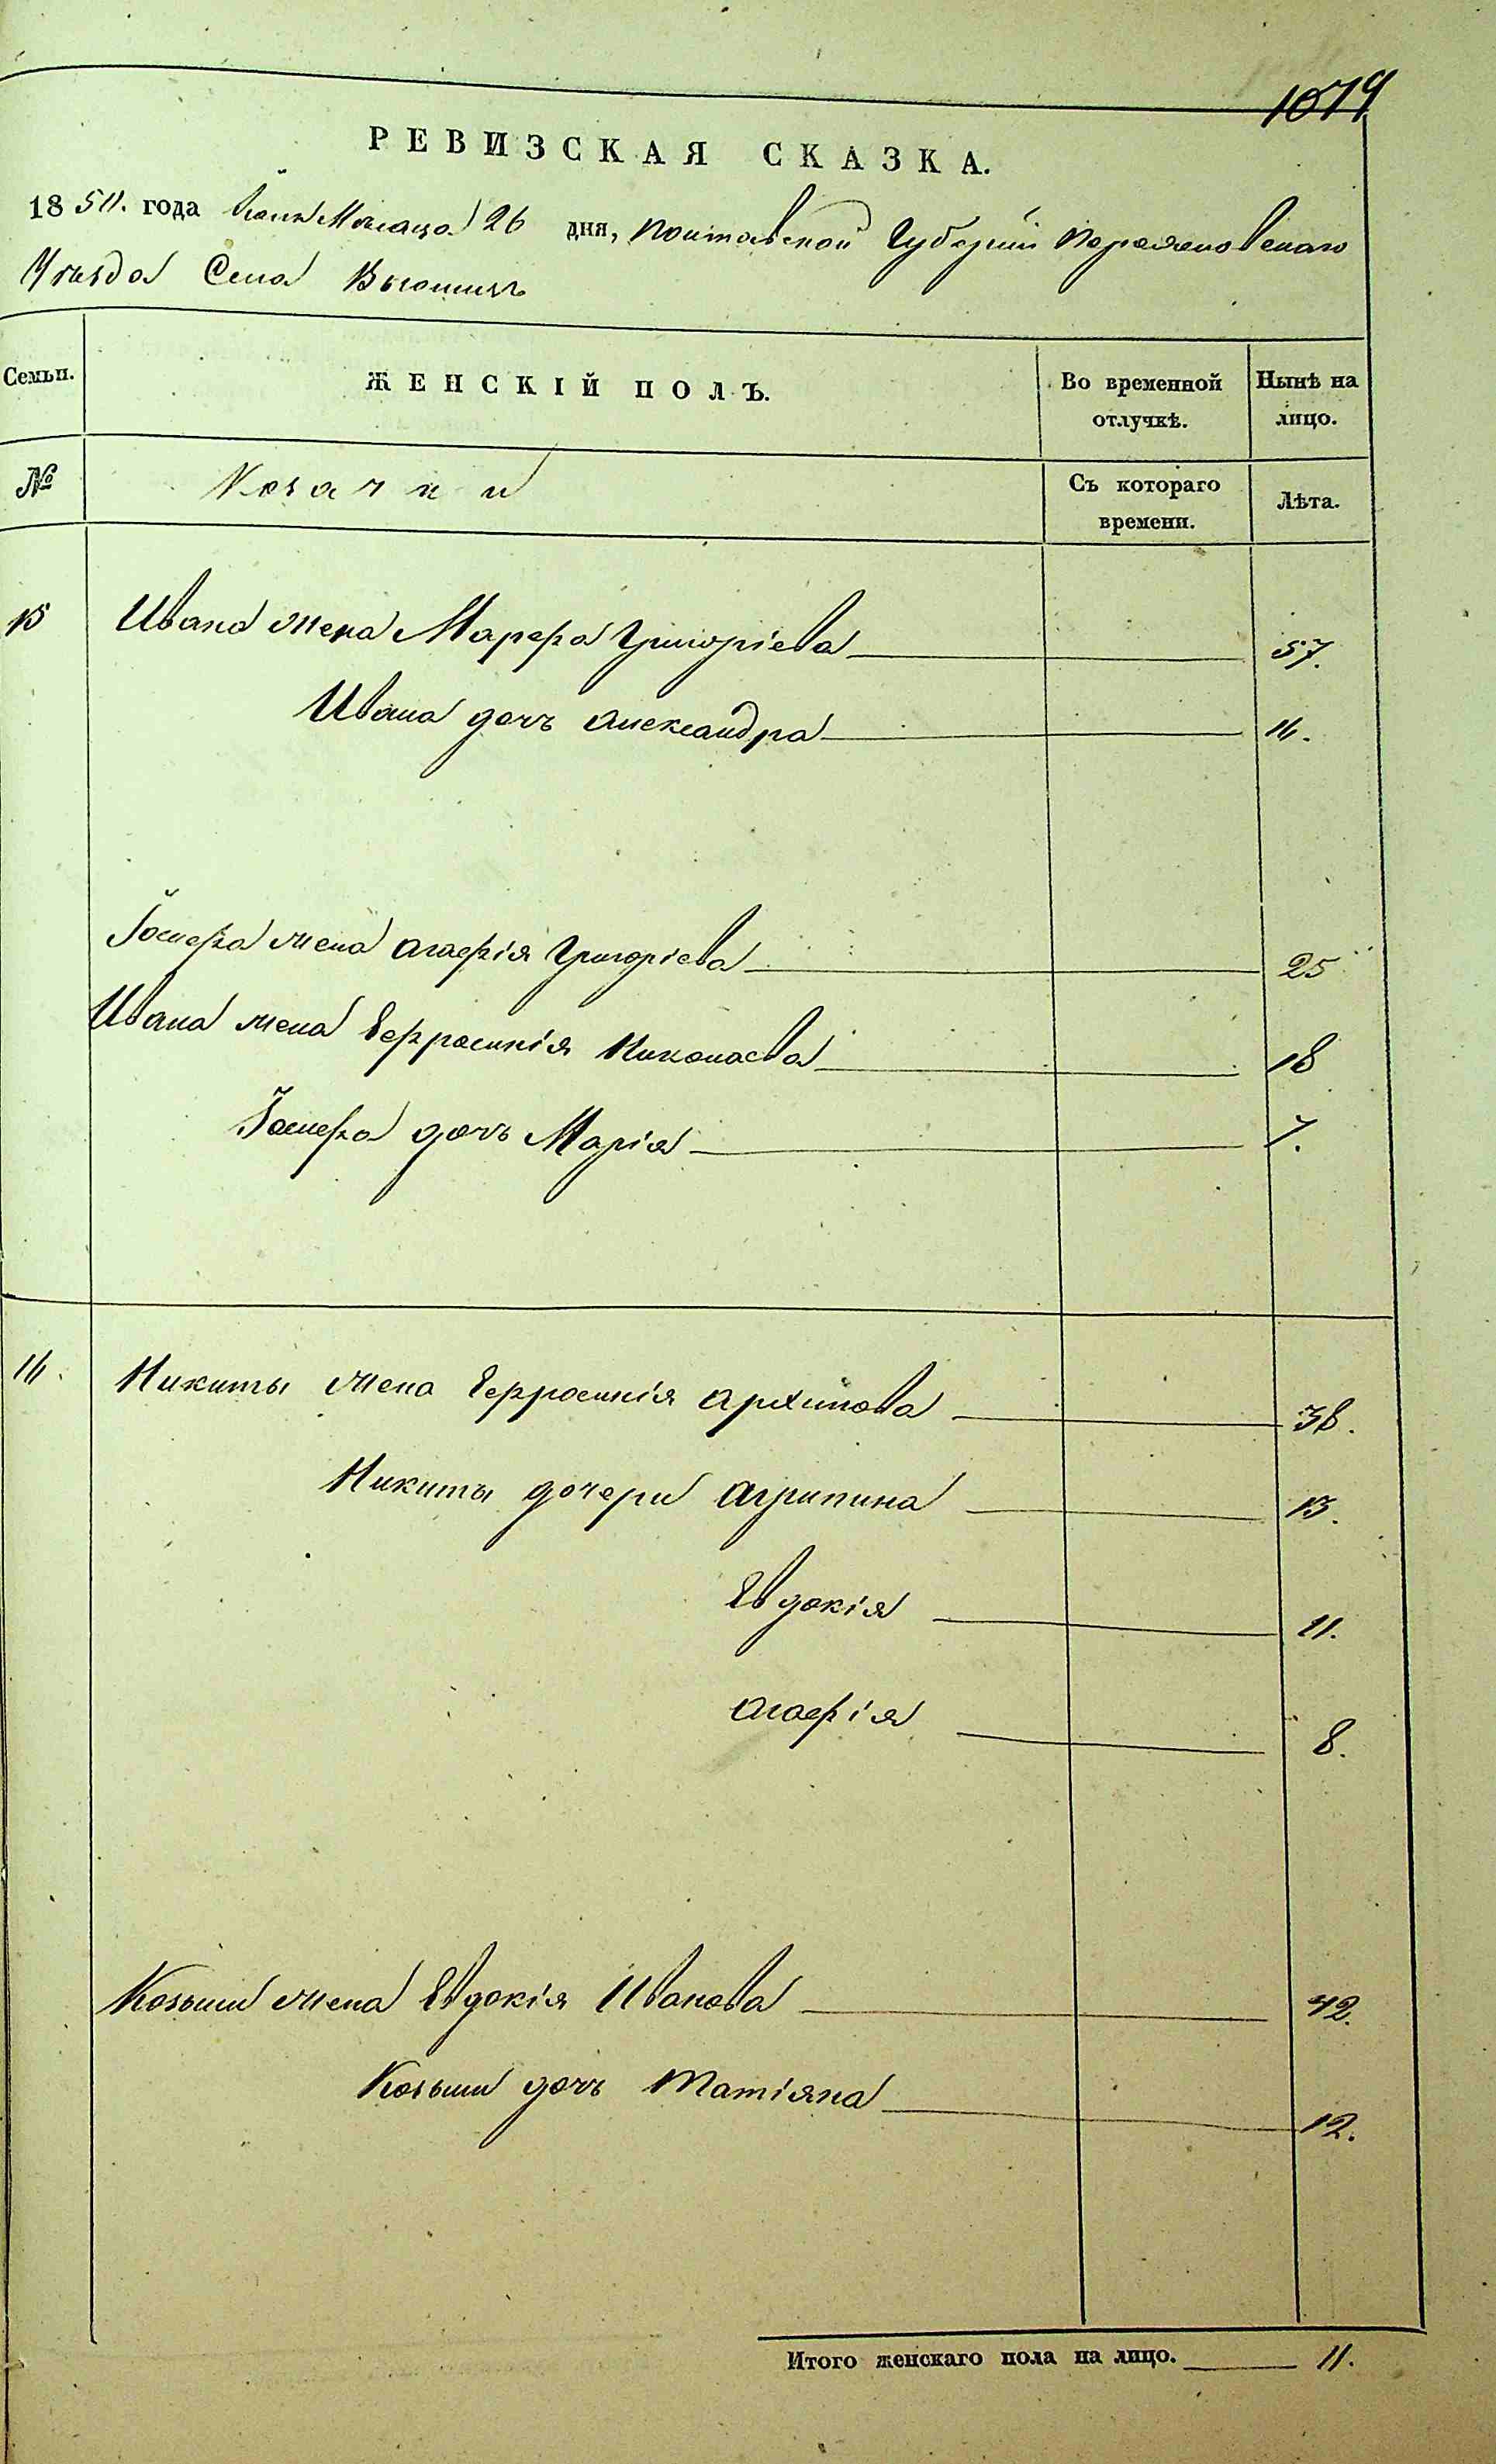 1079
РЕВИЗСКАЯ СКАЗКА.
1850. года Іюня Месяца 26 дня, Полтавской Губерніи Переяславскаго
Уезда Села
Семьи. ЖЕНСКІЙ ПОЛЪ. Во временной отлучкѣ. Нынѣ на лицо.
№ Козачки Съ котораго времени. Лѣта.
15 Ивана жена Марфа Григоріева 57.
Ивана дочь Александра 16.
Іосифа жена Агафія Григоріева 25
Ивана жена Евфросинія Николаева 18
Іосифа дочь Марія 7.
16. Никиты жена Евфросинія Архипова 38.
Никиты дочери Агрипина 13.
Евдокія 11.
Агафія 8.
Козьми жена Евдокія Иванова 42.
Козьми дочь Татіяна 12.
Итого женскаго пола на лицо. 11.